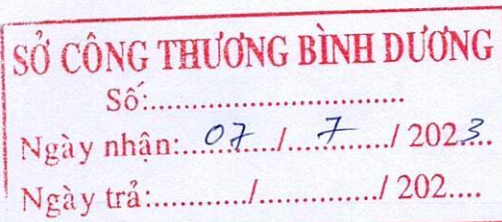 SỞ CÔNG THƯƠNG BÌNH DƯƠNG
Số:..............................
Ngày nhận:...07.../....7...../ 2023...
Ngày trả:............/............../ 202....